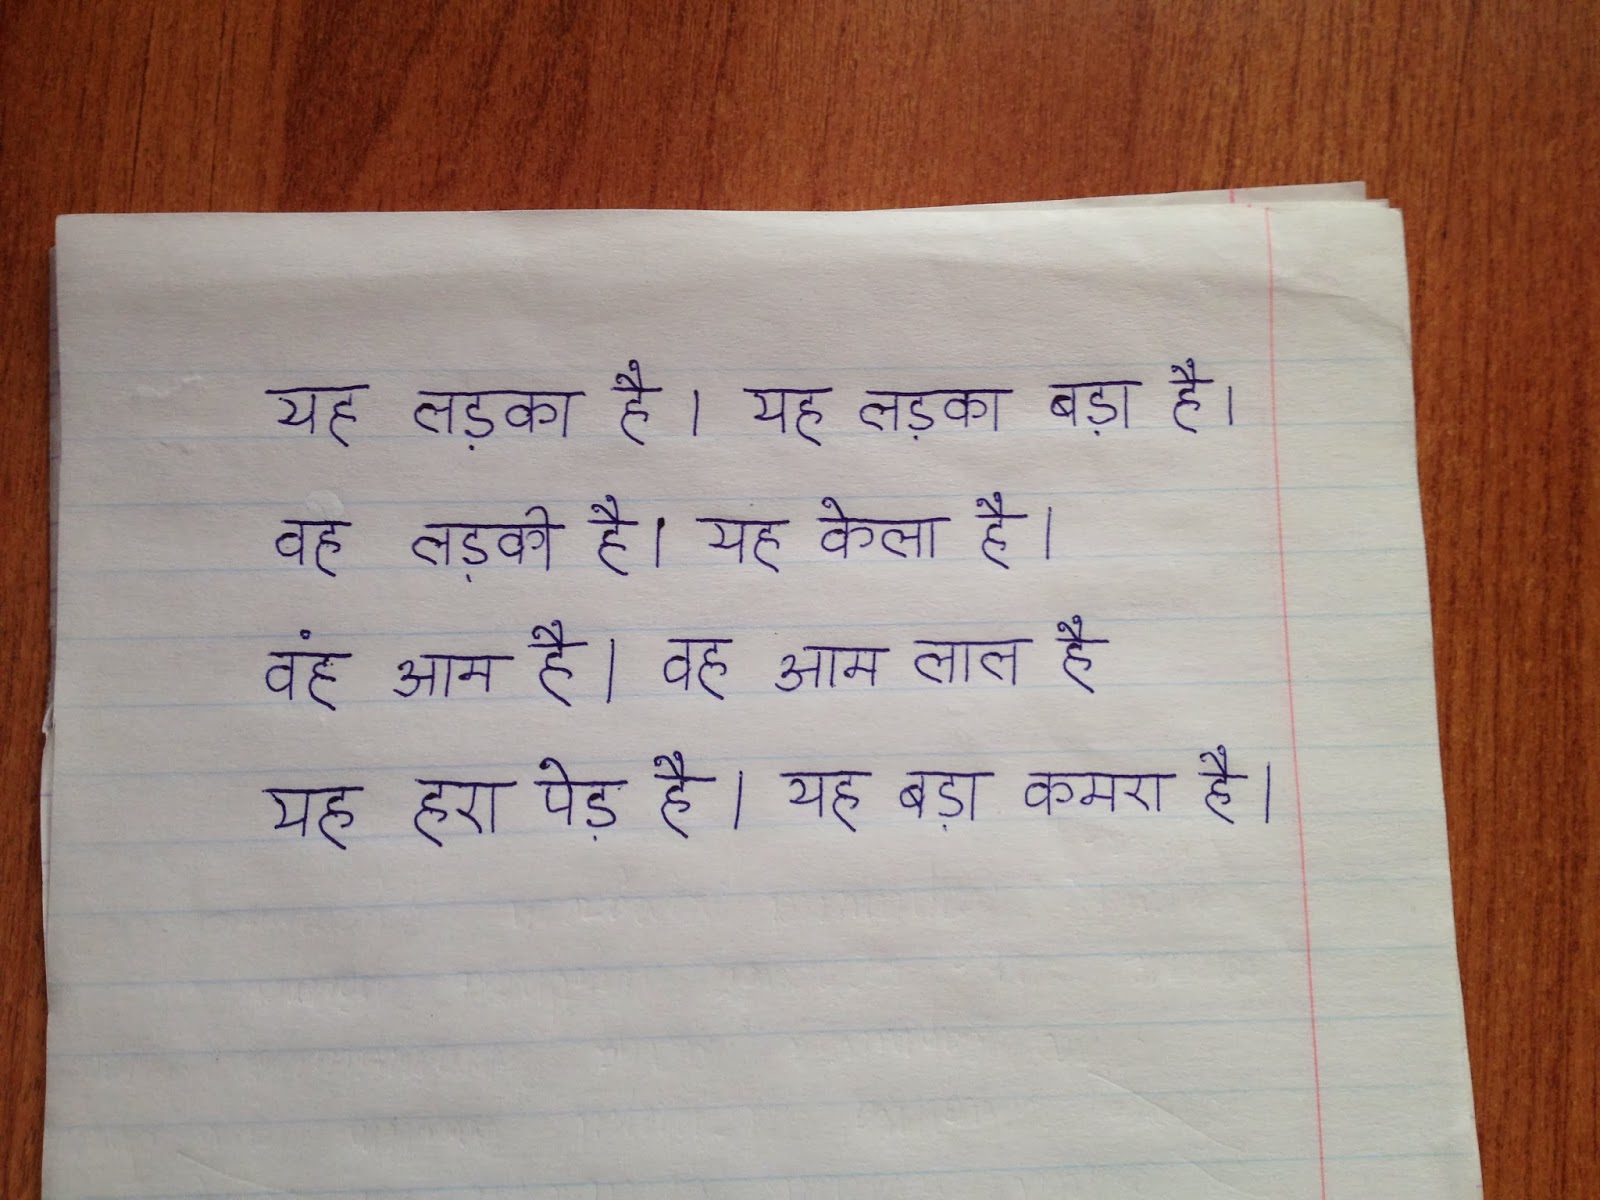 यह लड़का है। यह लड़का बड़ा है।
वह लड़की है। यह केला है।
वंह आम है। वह आम लाल है
यह हरा पेड़ है। यह बड़ा कमरा है।